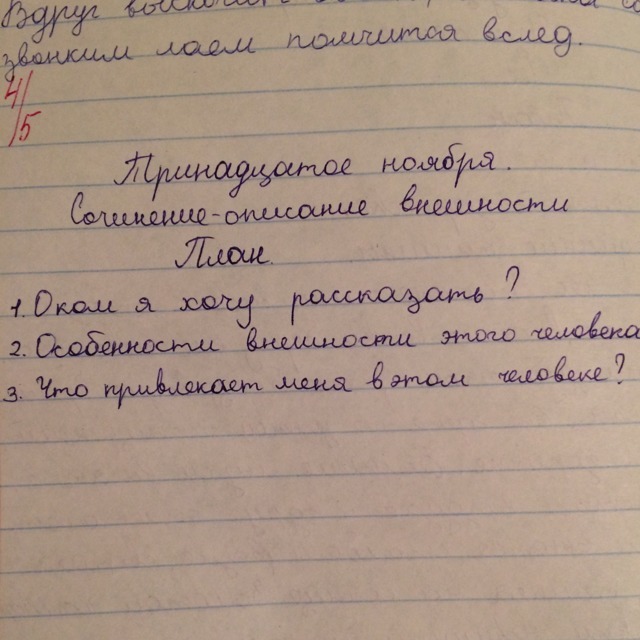 Вдруг
звонким лаем помчится вслед.
4/5
Тринадцатое ноября.
Сочинение-описание внешности
План.
1. Оком я хочу рассказать?
2. Особенности внешности этого человека
3. Что привлекает меня в этом человеке?